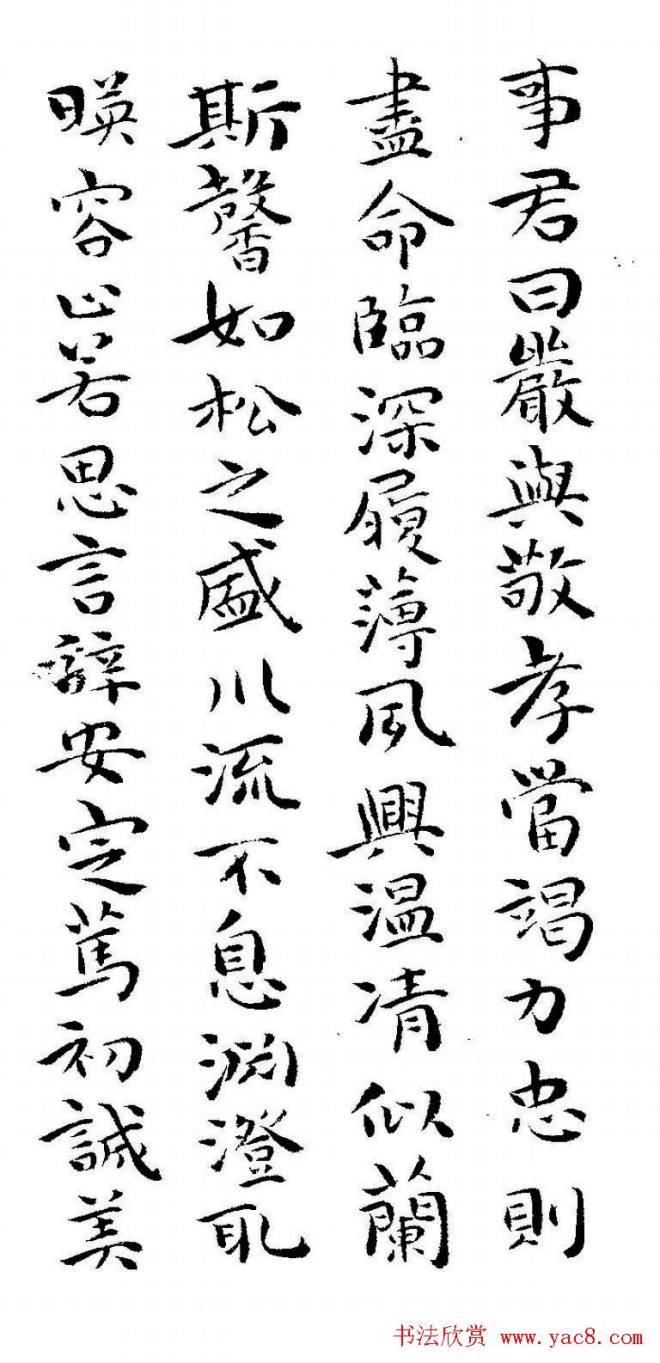 事君曰嚴與敬孝當竭力忠則
盡命臨深履薄夙興温凊似蘭
斯馨如松之盛川流不息淵澄取
暎容止若思言辭安定篤初誠美
书法欣赏 www.yac8.com